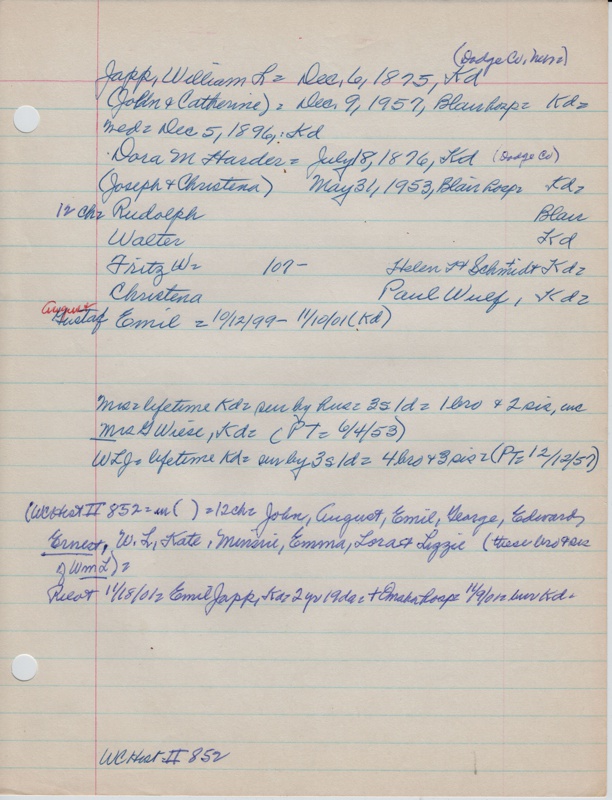 (Dodge Co, Nebr)
Japp, William L = Dec, 6, 1875, Kd
(John & Catherine) = Dec 9, 1957, Blair hosp = Kd =
med = Dec 5, 1896, : Kd
Dora M Harder = July 18, 1876, Kd (Dodge Co)
(Joseph & Christena) May 31, 1953, Blair hosp = Kd =
12 ch = Rudolph Blair
Walter Kd
Fritz W = 107 - Helen H Schmidt Kd =
Christena Paul Wulf, Kd =
August
Gustaf Emil = 10/12/99 - 11/10/01 (Kd)
Mrs = lifetime Kd = sur by hus = 3s 1d = 1 bro & 2 sis, inc
Mrs G Wiese, Kd = (PT = 6/4/53)
WLJ = lifetime Kd = sur by 3s 1d = 4 bro & 3 sis = (PT = 12/12/57)
(WC Hist II 852 = ( ) = 12 ch = John, August, Emil, George, Edward,
Ernest, W. L, Kate, Minnie, Emma, Lora & Lizzie (these bro & sis
of Wm L) =
Pilot 11/18/01 = Emil Japp, Kd = 2 yr 19 da = + Omaha hosp = 11/9/01 = bur Kd =
WC Hist II 852